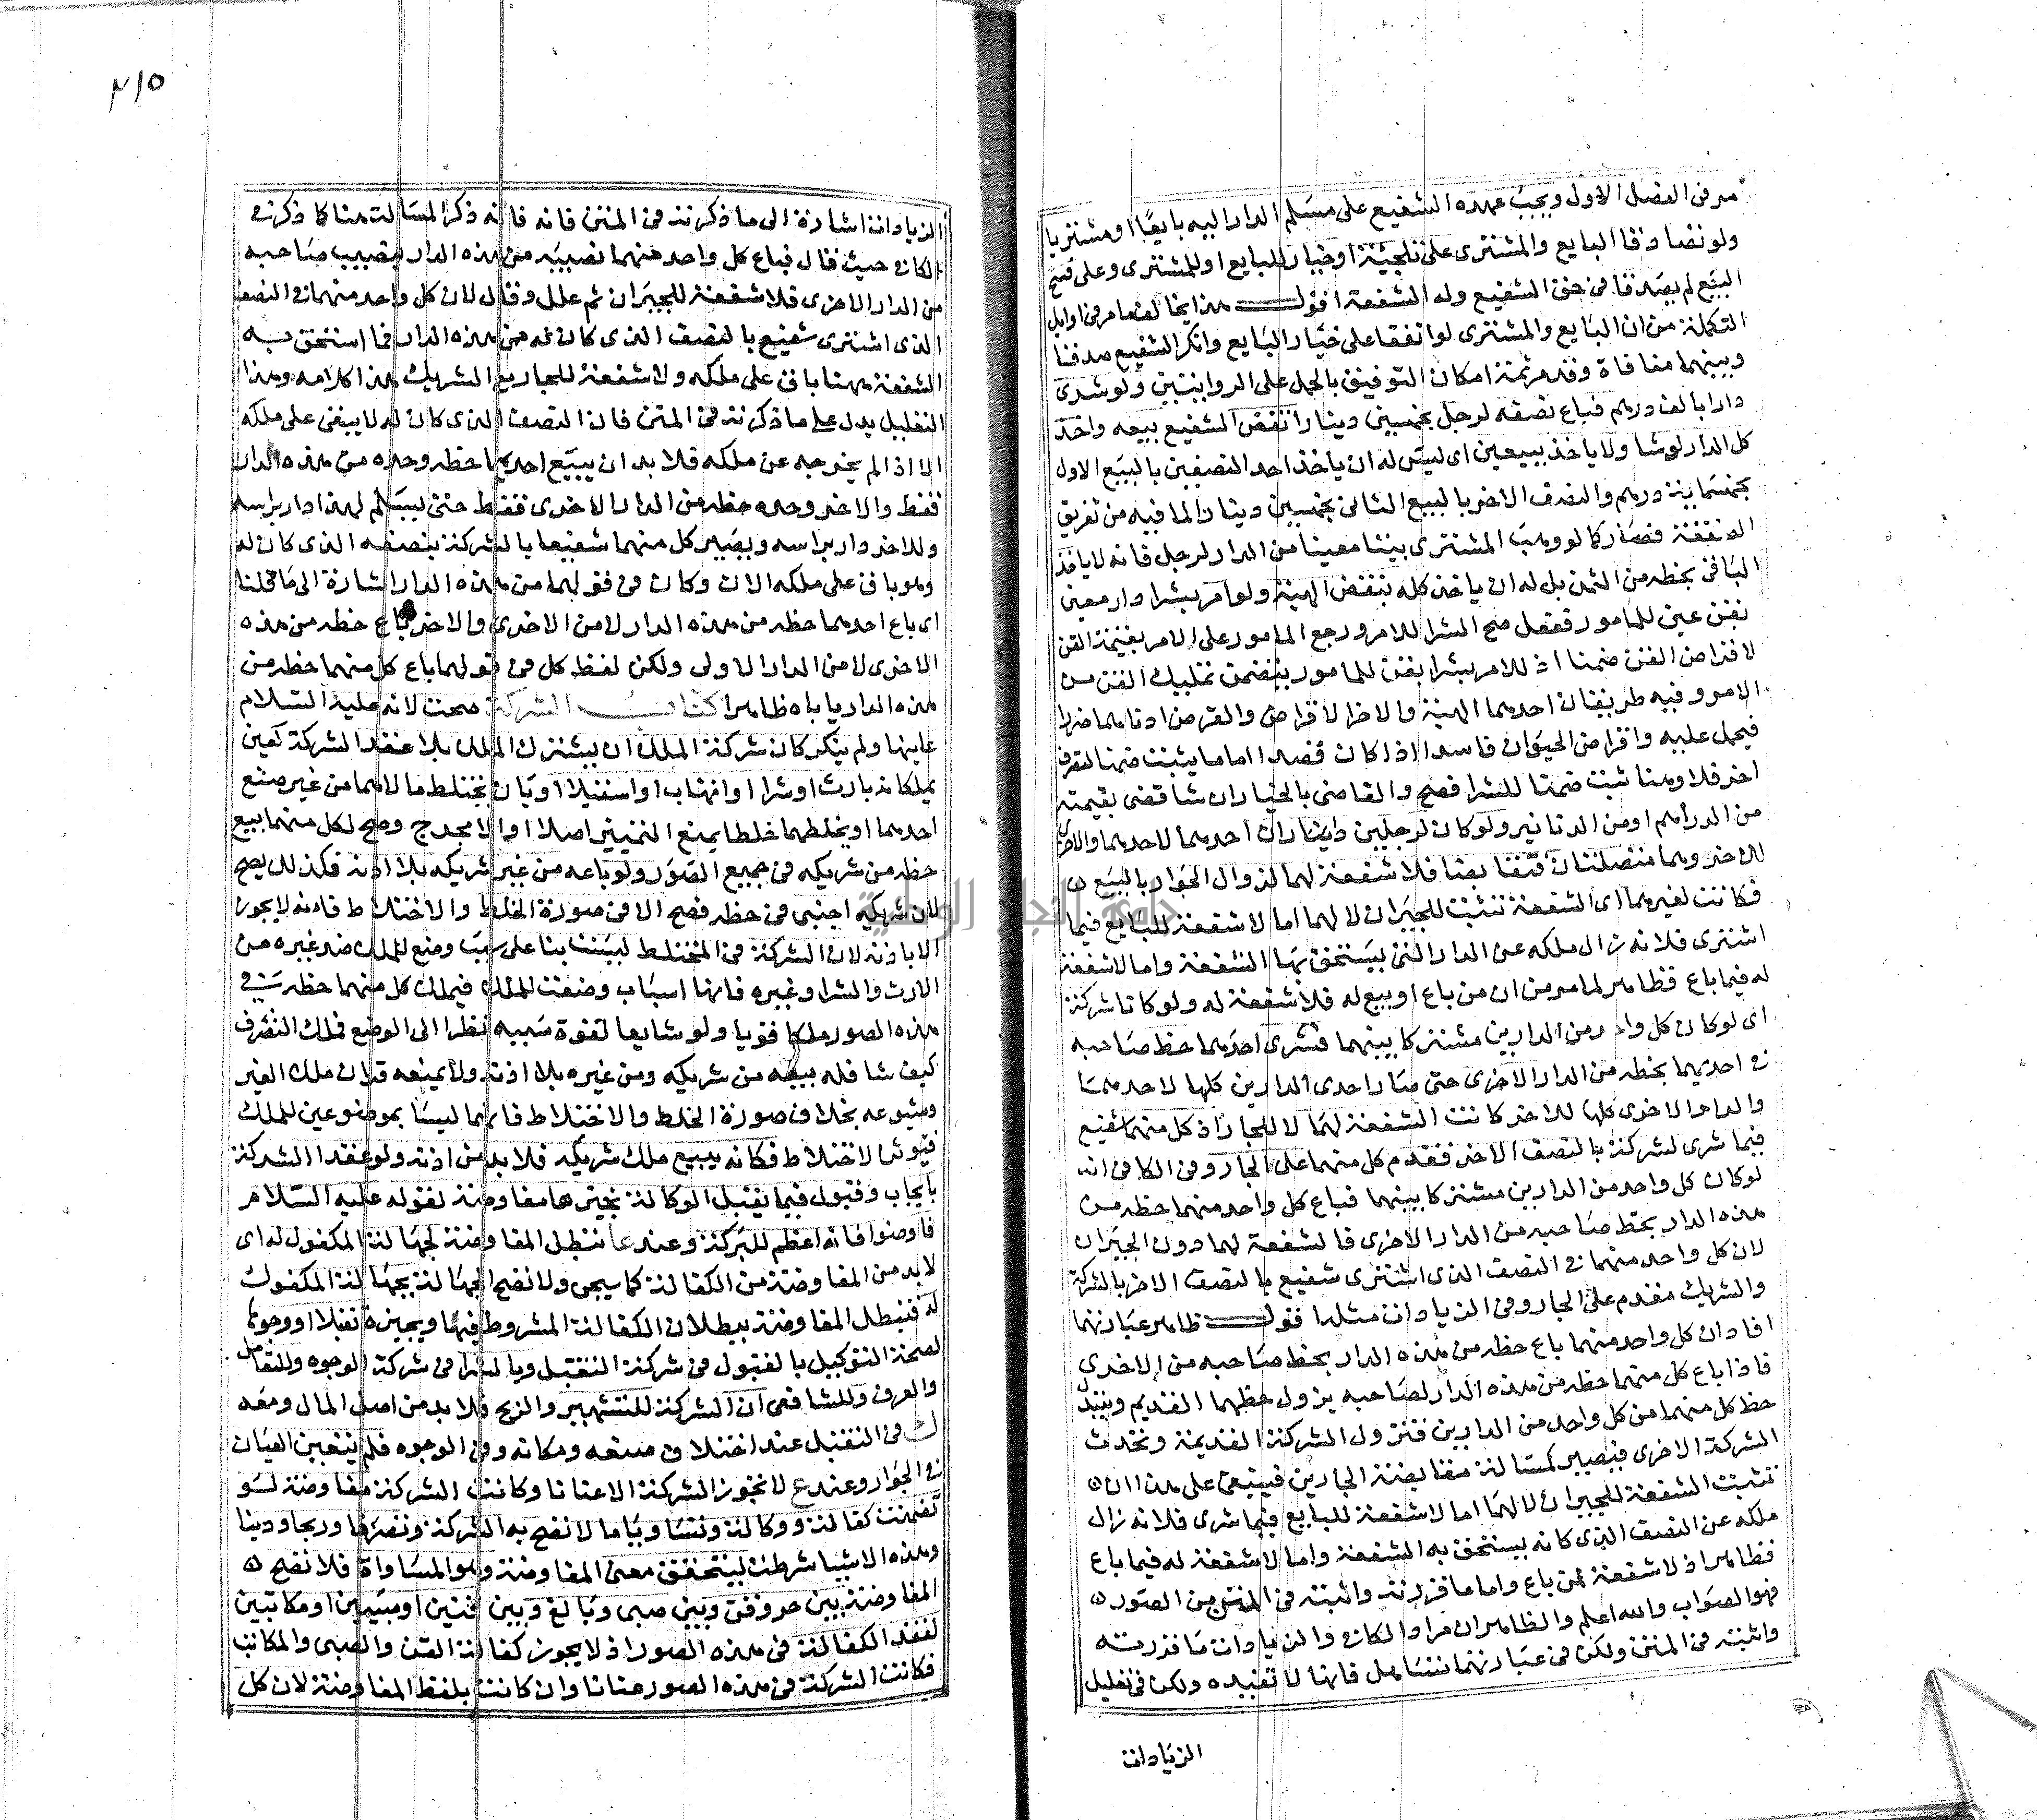 مر في الفصل الاول ويجب عهده الشفيع على مسلم الدار اليه بايعا او مشتريا
ولو تصادقا البايع والمشترى على تلجئة او خيار للبايع او للمشترى وعلى فسخ
البيع لم يصدقا في حق الشفيع وله الشفعة اقول هذا يخالف ما مر في اوايل
التكملة من ان البايع والمشترى لو اتفقا على خيار البايع وانكر الشفيع صدقنا
وبينهما منافاة وقد مر ثمة امكان التوفيق بالحمل على الروايتين ولو شرى
دارا بالف درهم فباع نصفه لرجل بخمسين دينارا نقض الشفيع بيعه واخذ
كل الدار لو شا ولا ياخذ ببيعين اى ليس له ان ياخذ احد النصفين بالبيع الاول
بخمسماية درهم والنصف الاخر بالبيع الثانى بخمسين دينارا لما فيه من تفريق
الصفقة فصار كما لو وهب المشترى بيتا معينا من الدار لرجل فانه لا ياخذ
الباقى بحظه من الثمن بل له ان ياخذ كله بنقض الهبة ولو امر بشرا دار معين
بقن عين للمامور ففعل صح الشرا للامر ورجع المامور على الامر بقيمة القن
لاقراض القن ضمنا اذ للامر بشرا بقن للمامور يتضمن تمليك القن من
الامر وفيه طريقان احدهما الهبة والاخر الاقراض والقرض ادناهما ضررا
فيحمل عليه واقراض الحيوان فاسد اذا كان قصدا اما ما يثبت ضمنا لتصرف
اخر فلا وهنا ثبت ضمنا للشرا فصح والقاضى بالخيار ان شا قضى بقيمته
من الدراهم او من الدنانير ولو كان لرجلين داران احدهما لاحدهما والاخرى
للاخر وهما متصلتان فتقايضا فلا شفعة لهما لزوال الجوار بالبيع
فكانت لغيرهما اى الشفعة تثبت للجيران لا لهما اما لا شفعة للبايع فيما
اشترى فلانه زال ملكه عن الدار التى يستحق بها الشفعة واما لا شفعة
له فيما باع فظاهر لما مر من ان من باع او بيع له فلا شفعة له ولو كانا شركة
اى لو كان كل واحد من الدارين مشتركا بينهما فشرى احدهما حظ صاحبه
في احديهما بحظه من الدار الاخرى حتى صار احدى الدارين كلها لاحدهما
والدار الاخرى كلها للاخر كانت الشفعة لهما لا للجار اذ كل منهما شفيع
فيما شرى لشركة بالنصف الاخر فقدم كل منهما على الجار وفى الكافى انه
لو كان كل واحد من الدارين مشتركا بينهما فباع كل واحد منهما حظه من
هذه الدار بحظ صاحبه من الدار الاخرى فالشفعة لهما دون الجيران
لان كل واحد منهما في النصف الذى اشترى شفيع بالنصف الاخر بالشركة
والشريك مقدم على الجار وفى الزيادات مثله اقول ظاهر عبارتهما
افاد ان كل واحد منهما باع حظه من هذه الدار بحظ صاحبه من الاخرى
فاذا باع كل منهما حظه من هذه الدار لصاحبه يزول حظهما القديم ويتبدل
حظ كل منهما من كل واحد من الدارين فتزول الشركة القديمة وتحدث
الشركة الاخرى فيصير كمسالة مقايضة الجارين فينبغى على هذا ان
تثبت الشفعة للجيران لا لهما اما لا شفعة للبايع فيما شرى فلانه زال
ملكه عن النصف الذى كانه يستحق به الشفعة واما لا شفعة له فيما باع
فظاهر اذ لا شفعة لمن باع واما ما قررته واثبته في المتن من الصور
فهو الصواب والله اعلم والظاهر ان مراد الكافى والزيادات ما قدرته
واثبته في المتن ولكن في عبارتهما تساهل فانها لا تفيده ولكن في تعليل
الزيادات
٢١٥
الزيادات اشارة الى ما ذكرته في المتن فانه قال انه ذكر المسالة هنا كما ذكر في
الكافى حيث قال فباع كل واحد منهما نصيبه من هذه الدار بنصيب صاحبه
من الدار الاخرى فلا شفعة للجيران ثم علل وقال لان كل واحد منهما في النصف
الذى اشترى شفيع بالنصف الذى كان له من هذه الدار فما استحق به
الشفعة ههنا باق على ملكه ولا شفعة للجار مع الشريك هذا كلامه وهذا
التعليل يدل على ما ذكرته في المتن فان النصف الذى كان له لا يبقى على ملكه
الا اذا لم يخرجه عن ملكه فلا بد ان يبيع احدهما حظه وحده من هذه الدار
فقط والاخر وحده حظه من الدار الاخرى فقط حتى يسلم لهذا دار براسه
وللاخر دار براسه ويصير كل منهما شفيعا بالشركة بنصفه الذى كان له
وهو باق على ملكه الان وكان في قولهما من هذه الدار اشارة الى ما قلنا
اى باع احدهما حظه من هذه الدار لا من الاخرى والاخر باع حظه من هذه
الاخرى لا من الدار الاولى ولكن لفظ كل في قولهما باع كل منهما حظه من
هذه الدار ياباه ظاهرا كتاب الشركة صحت لانه عليه السلام
عاينها ولم ينكر كان شركة الملك ان يشترك الملك بلا عقد الشركة كعين
يملكانه بارث او شرا او اتهاب او استيلا او بان يختلط مالاهما من غير صنع
احدهما او يخلطهما خلطا يمنع التمييز اصلا او الا بحرج وصح لكل منهما بيع
حظه من شريكه في جميع الصور ولو باعه من غير شريكه بلا اذنه فكذلك يصح
لان شريكه اجنبى في حظه فصح الا في صورة الخلط والاختلاط فانه لا يجوز
الا باذنه لان الشركة في المختلط ليست بنا على سبب وضع للملك ضد غيره من
الارث والشرا وغيره فانها اسباب وضعت للملك فيملك كل منهما حظه في
هذه الصور ملكا قويا ولو شايعا لقوة سببه نظرا الى الوضع فملك التصرف
كيف شا فله بيعه من شريكه ومن غيره بلا اذنه ولا يمنعه قران ملك الغير
وشيوعه بخلاف صورة الخلط والاختلاط فانهما ليسا بموضوعين للملك
فيوثر الاختلاط فكانه يبيع ملك شريكه فلا بد من اذنه ولو عقدا الشركة
بايجاب وقبول فيما يقبل الوكالة نجيزها مفاوضة لقوله عليه السلام
فاوضوا فانه اعظم للبركة وعندعا تبطل المفاوضة لجهالة المكفول له اى
لا بد من المفاوضة من الكفالة كما سيجى ولا تصح الجهالة بجهالة المكفول
له فتبطل المفاوضة ببطلان الكفالة المشروط فيها ويجيزه تقبلا او وجوها
لصحة التوكيل بالقبول في شركة التقبل وبالشرا في شركة الوجوه وللتعامل
والعرف وللشافعى ان الشركة للتشهير والربح فلا بد من اصل المال ومعه
ك في التقبل عند اختلاف صنعه ومكانه وفى الوجوه فلم يتعين العيان
في الجوار وعندع لا تجوز الشركة الا عنانا وكانت الشركة مفاوضة لو
تضمنت كفالة ووكالة وتساويا مالا تصح به الشركة وتصرفا وربحا ودينا
وهذه الاشيا شرطت ليتحقق معنى المفاوضة وهو المساواة فلا تصح
المفاوضة بين حر وقن وبين صبى وبالغ وبين قنين او صبيين او مكاتبين
لفقد الكفالة في هذه الصور اذ لا يجوز كفالة القن والصبى والمكاتب
فكانت الشركة في هذه الصور عنانا وان كانت بلفظ المفاوضة لان كل
جامعة النجاح الوطنية